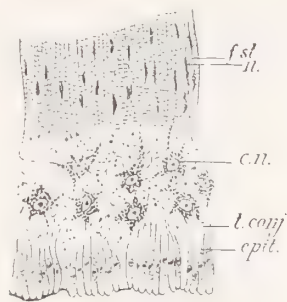 f.st.
n.
c.n.
t.conj
epit.